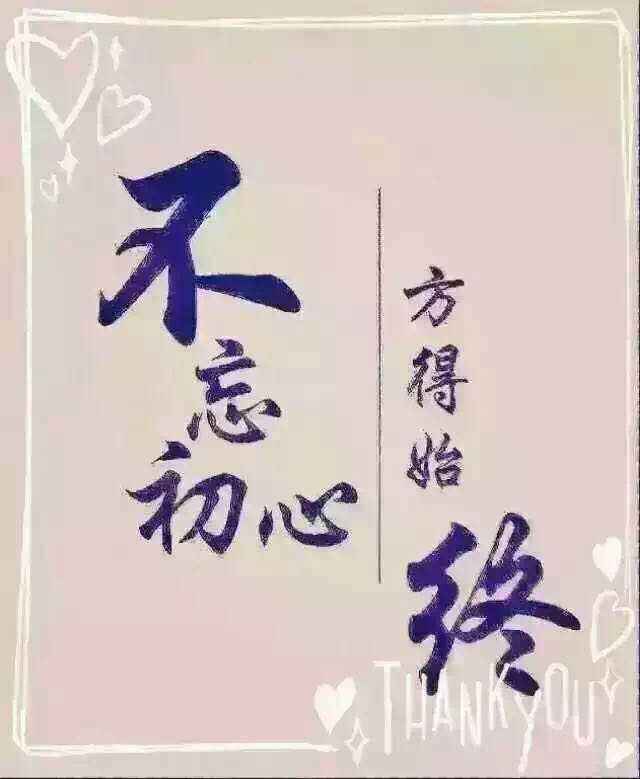 不忘初心
方得始终
THANK YOU